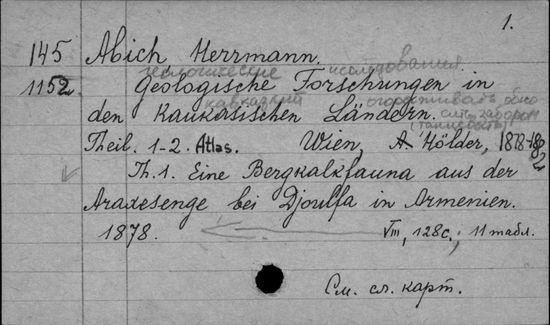 1.
145 Abich Herrmann.
геологические исследования
1152. Geologische Forschungen in
кавказский
den Kaukasischen Ländern.
Theil. 1-2. Atlas. Wien, A Hölder, 1878-82
Th. 1. Eine Bergkalkfauna aus der
Araxesenge bei Djoulfa in Armenien.
1878. VIII, 128 с.; 11 табл.
См. сл. карт.